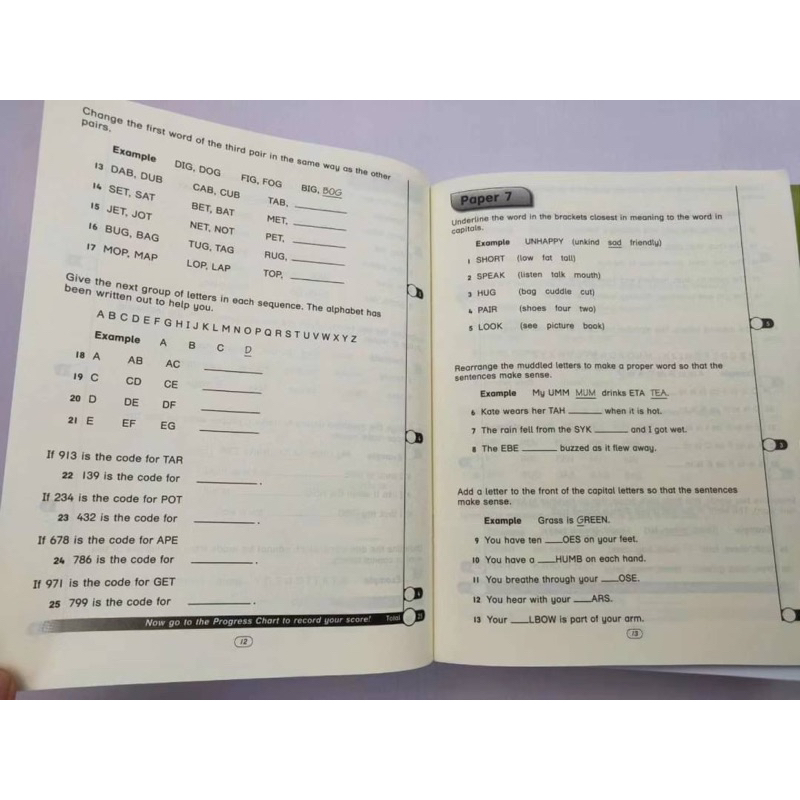 Change the first word of the third pair in the same way as the other
pairs.
Example DIG, DOG FIG, FOG BIG, BOG
13 DAB, DUB CAB, CUB TAB, ______
14 SET, SAT BET, BAT MET, ______
15 JET, JOT NET, NOT PET, ______
16 BUG, BAG TUG, TAG RUG, ______
17 MOP, MAP LOP, LAP TOP, ______
Give the next group of letters in each sequence. The alphabet has
been written out to help you.
A B C D E F G H I J K L M N O P Q R S T U V W X Y Z
Example A B C D
18 A AB AC ______
19 C CD CE ______
20 D DE DF ______
21 E EF EG ______
If 913 is the code for TAR
22 139 is the code for ______.
If 234 is the code for POT
23 432 is the code for ______.
If 678 is the code for APE
24 786 is the code for ______.
If 971 is the code for GET
25 799 is the code for ______.
Now go to the Progress Chart to record your score! Total 25
12
Paper 7
Underline the word in the brackets closest in meaning to the word in
capitals.
Example UNHAPPY (unkind sad friendly)
1 SHORT (low fat tall)
2 SPEAK (listen talk mouth)
3 HUG (bag cuddle cut)
4 PAIR (shoes four two)
5 LOOK (see picture book)
5
Rearrange the muddled letters to make a proper word so that the
sentences make sense.
Example My UMM MUM drinks ETA TEA.
6 Kate wears her TAH ______ when it is hot.
7 The rain fell from the SYK ______ and I got wet.
8 The EBE ______ buzzed as it flew away.
3
Add a letter to the front of the capital letters so that the sentences
make sense.
Example Grass is GREEN.
9 You have ten ___OES on your feet.
10 You have a ___HUMB on each hand.
11 You breathe through your ___OSE.
12 You hear with your ___ARS.
13 Your ___LBOW is part of your arm.
13